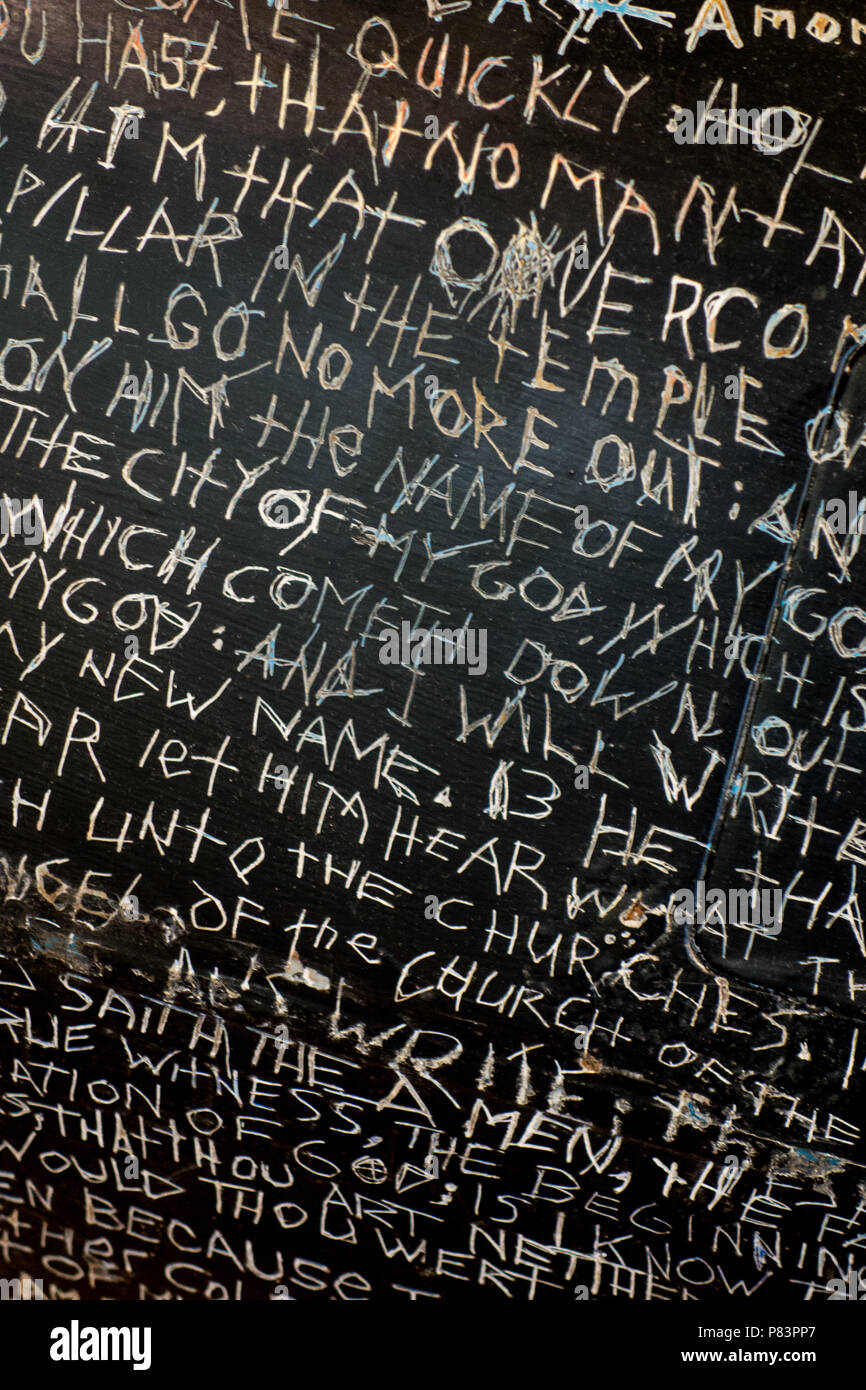 COME QUICKLY: HOL
U HAST, THAT NO MAN TA
HIM THAT OVERCO
PILLAR IN THE TEMPLE
ALL GO NO MORE OUT: AN
ON HIM THE NAME OF MY GO
THE CITY OF MY GOD, WHICH IS
WHICH COMETH DOWN OUT
MY GOD: AND I WILL WRITE
MY NEW NAME. 13 HE THAT
AR let HIM HEAR WHAT TH
H UNTO THE CHURCHES.
NGEL OF the CHURCH OF THE
WRITE: THE
SAITH THE AMEN, THE FA
RUE WITNESS, THE BEGINNING
ATION OF GOD; IS I KNOW T
S, THAT THOU ART NEITHE
WOULD THOU WERT
EN BECAUSE
ther
T OF COL
alamy
Image ID: P83PP7
www.alamy.com